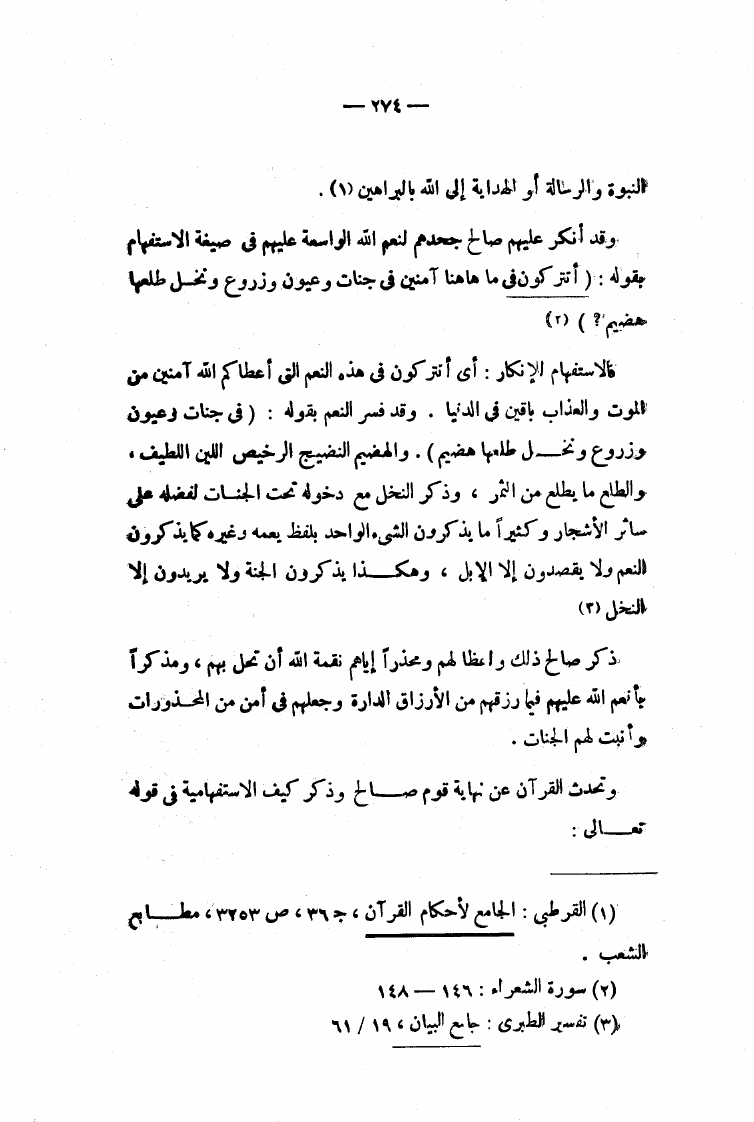 — ٢٧٤ —
النبوة والرسالة أو الهداية إلى الله بالبراهين (١) .
وقد أنكر عليهم صالح جحدهم لنعم الله الواسعة عليهم فى صيغة الاستفهام
بقوله : ( أتتركون فى ما هاهنا آمنين فى جنات وعيون وزروع ونخل طلعها
هضيم ؟ ) (٢)
فالاستفهام الإنكار : أى أتتركون فى هذه النعم التى أعطاكم الله آمنين من
الموت والعذاب باقين فى الدنيا . وقد فسر النعم بقوله : ( فى جنات وعيون
وزروع ونخل طلعها هضيم ) . والهضيم النضيج الرخيص اللين اللطيف ،
والطلع ما يطلع من الثمر ، وذكر النخل مع دخوله تحت الجنات لفضله على
سائر الأشجار وكثيراً ما يذكرون الشىء الواحد بلفظ يعمه وغيره كما يذكرون
النعم ولا يقصدون إلا الإبل ، وهكذا يذكرون الجنة ولا يريدون إلا
النخل (٣)
ذكر صالح ذلك واعظا لهم ومحذراً إياهم نقمة الله أن تحل بهم ، ومذكراً
بأنعم الله عليهم فيما رزقهم من الأرزاق الدارة وجعلهم فى أمن من المحذورات
وأنبت لهم الجنات .
وتحدث القرآن عن نهاية قوم صالح وذكر كيف الاستفهامية فى قوله
تعالى :
(١) القرطبى : الجامع لأحكام القرآن ، ج٣٦ ، ص ٣٢٥٣ ، مطابع
الشعب .
(٢) سورة الشعراء : ١٤٦ — ١٤٨
(٣) تفسير الطبرى : جامع البيان ، ١٩ / ٦١